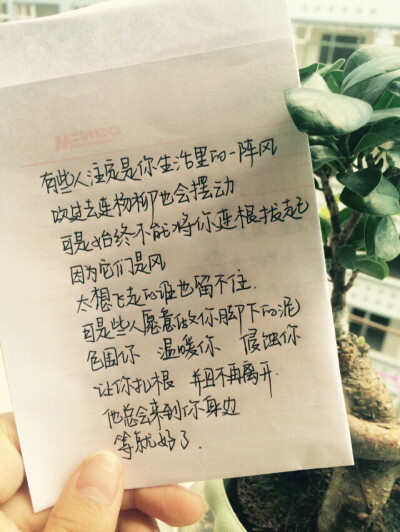 有些人注定是你生活里的一阵风
吹过去连杨柳也会摆动
可是始终不能将你连根拔起
因为它们是风
太想飞走的谁也留不住.
可是些人愿意做你脚下的泥
包围你 温暖你 侵蚀你
让你扎根 并且不再离开.
他总会来到你身边
等就好了.